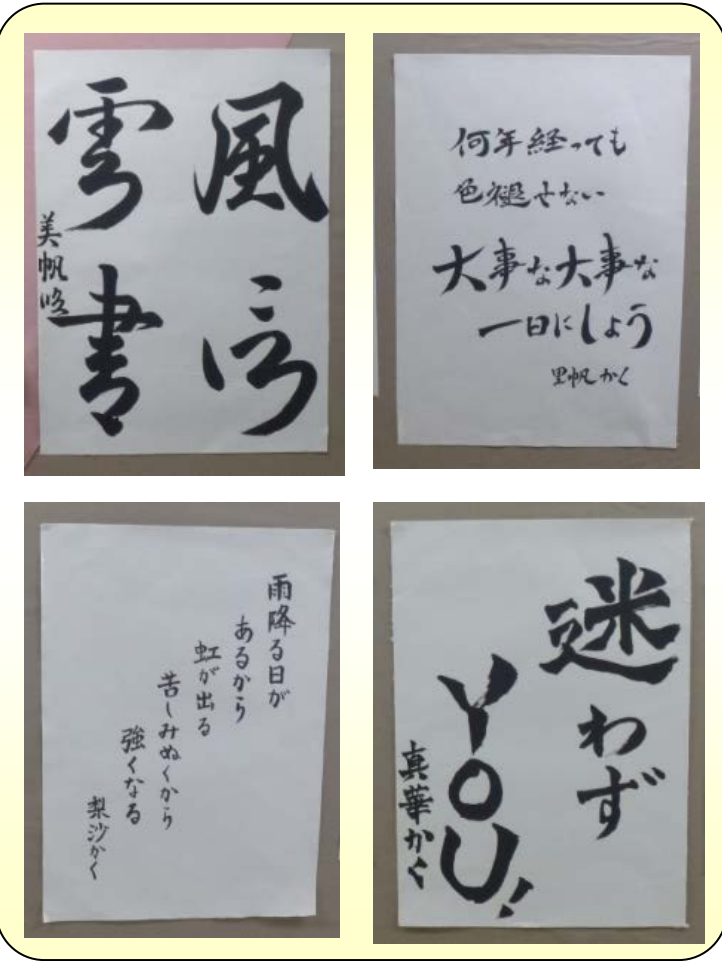 風信
雲書
美帆臨
何年経っても
色褪せない
大事な大事な
一日にしよう
里帆かく
雨降る日が
あるから
虹が出る
苦しみぬくから
強くなる
梨沙かく
迷わず
YOU!
真華かく